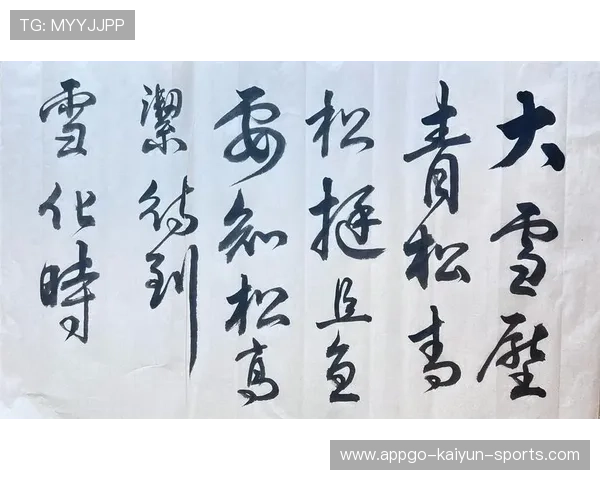 TG: MYYJJPP
大雪壓
青松青
松挺且直
要知松高
潔待到
雪化時
www.appgo-kaiyun-sports.com